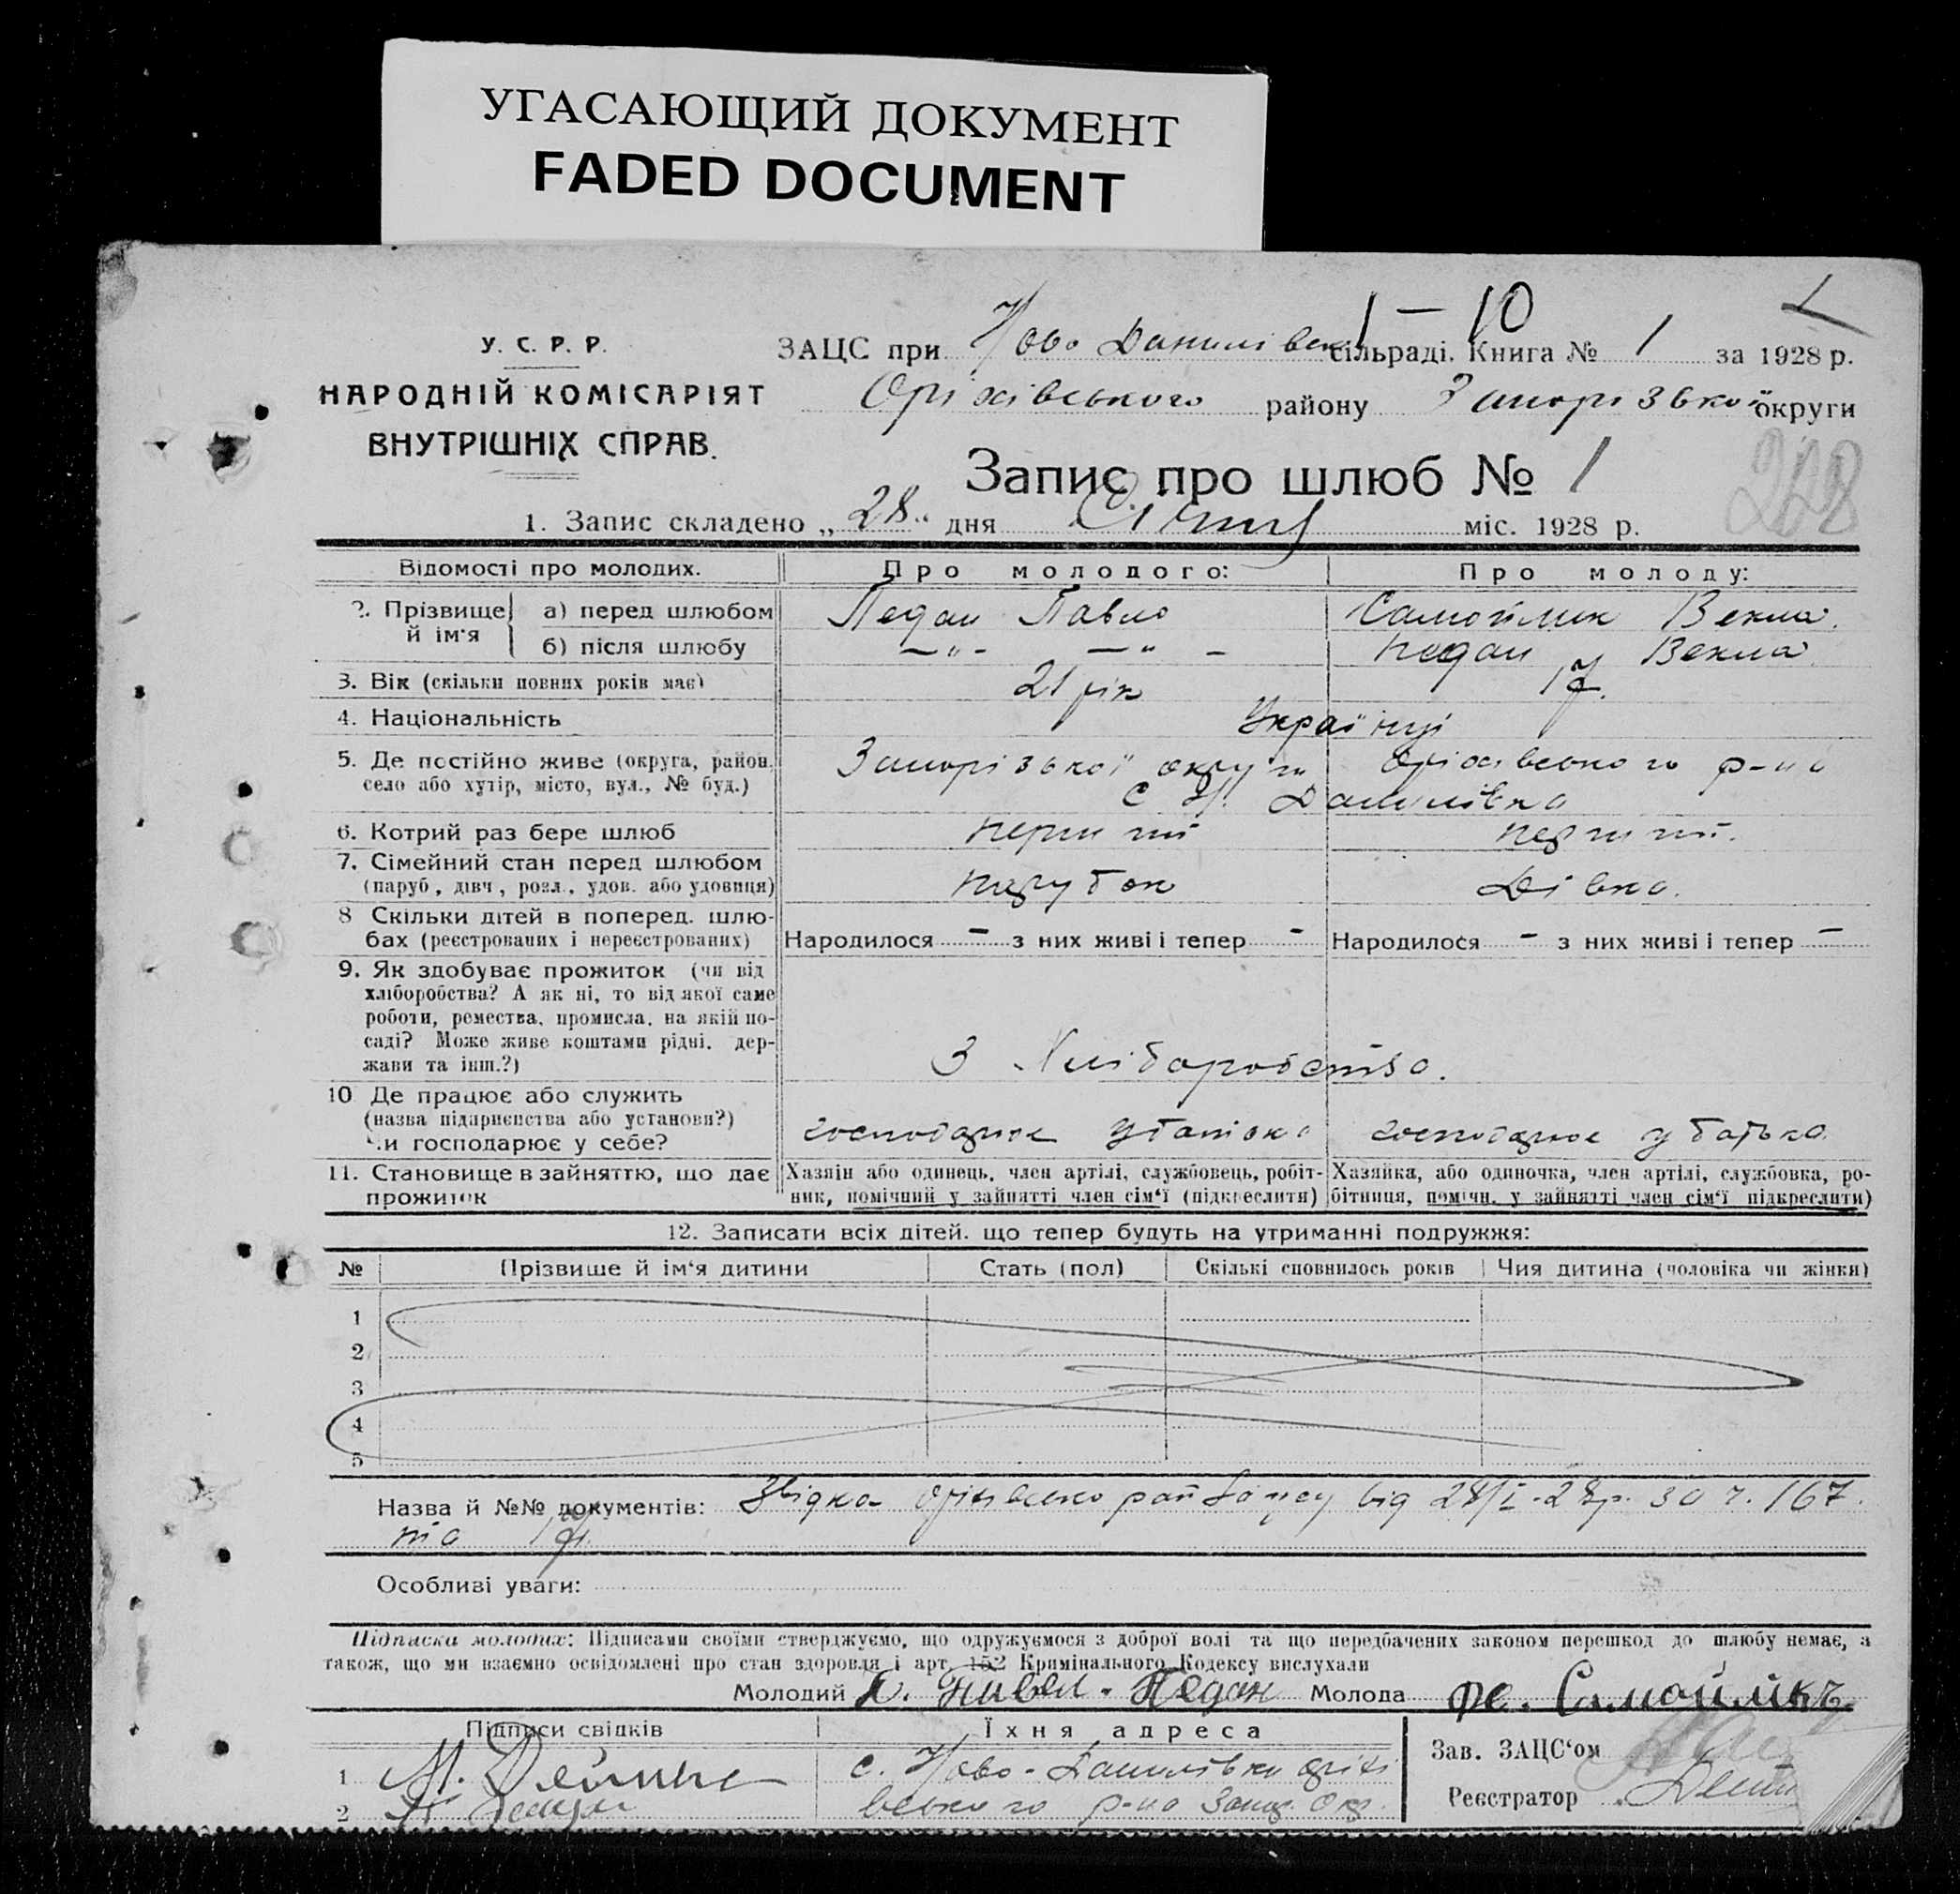 УГАСАЮЩИЙ ДОКУМЕНТ
FADED DOCUMENT
1 — 10
У. С. Р. Р.
НАРОДНІЙ КОМІСАРІЯТ
ВНУТРІШНІХ СПРАВ.
ЗАЦС при Ново Данилівськ сільраді. Книга № 1 за 1928 р.
Оріхівського району Запорізької округи
Запис про шлюб № 1
208
1. Запис складено „ 28 “ дня Січня міс. 1928 р.
Відомості про молодих. Про молодого: Про молоду:
2. Прізвище й ім'я
а) перед шлюбом Педан Павло Самойлик Векла.
б) після шлюбу —"- —"- Педан Векла.
3. Вік (скільки повних років має) 21 рік
4. Національність Українці
5. Де постійно живе (округа, район, Запорізької округи Оріхівського р-на
село або хутір, місто, вул., № буд.) с Н. Данилівка
6. Котрий раз бере шлюб перший перший.
7. Сімейний стан перед шлюбом
(паруб., дівч., розл., удов. або удовиця) парубок Дівка.
8 Скільки дітей в поперед. шлю-
бах (реєстрованих і нереєстрованих) Народилося - з них живі і тепер - Народилося - з них живі і тепер -
9. Як здобуває прожиток (чи від
хліборобства? А як ні, то від якої саме
роботи, ремества, промисла, на якій по-
саді? Може живе коштами рідні, дер-
жави та інш.?) З Хліборобства.
10 Де працює або служить
(назва підприєнства або установи?)
Чи господарює у себе? господарює у батька господарює у батька
11. Становище в зайняттю, що дає
прожиток
Хазяін або одинець, член артілі, службовець, робіт-
ник, помічний у зайнятті член сім'ї (підкреслити)
Хазяйка, або одиночка, член артілі, службовка, ро-
бітниця, помічн. у зайнятті член сім'ї підкреслити)
12. Записати всіх дітей, що тепер будуть на утриманні подружжя:
№ Прізвише й ім'я дитини Стать (пол) Скількі сповнилось років Чия дитина (чоловіка чи жінки)
1
2
3
4
5
Назва й №№ документів: від 28/I-28р. 167.
та
Особливі уваги:
Підписка молодих: Підписами своїми стверджуємо, що одружуємося з доброї волі та що передбачених законом перешкод до шлюбу немає, а
також, що ми взаємно освідомлені про стан здоровля і арт. 152 Кримінального Кодексу вислухали
Молодий Педан Молода Самойлікъ
Підписи свідків Їхня адреса
1 с. Ново-Данилівки Оріхі
2 вського р-на Запор. Окр.
Зав. ЗАЦС'ом
Реєстратор